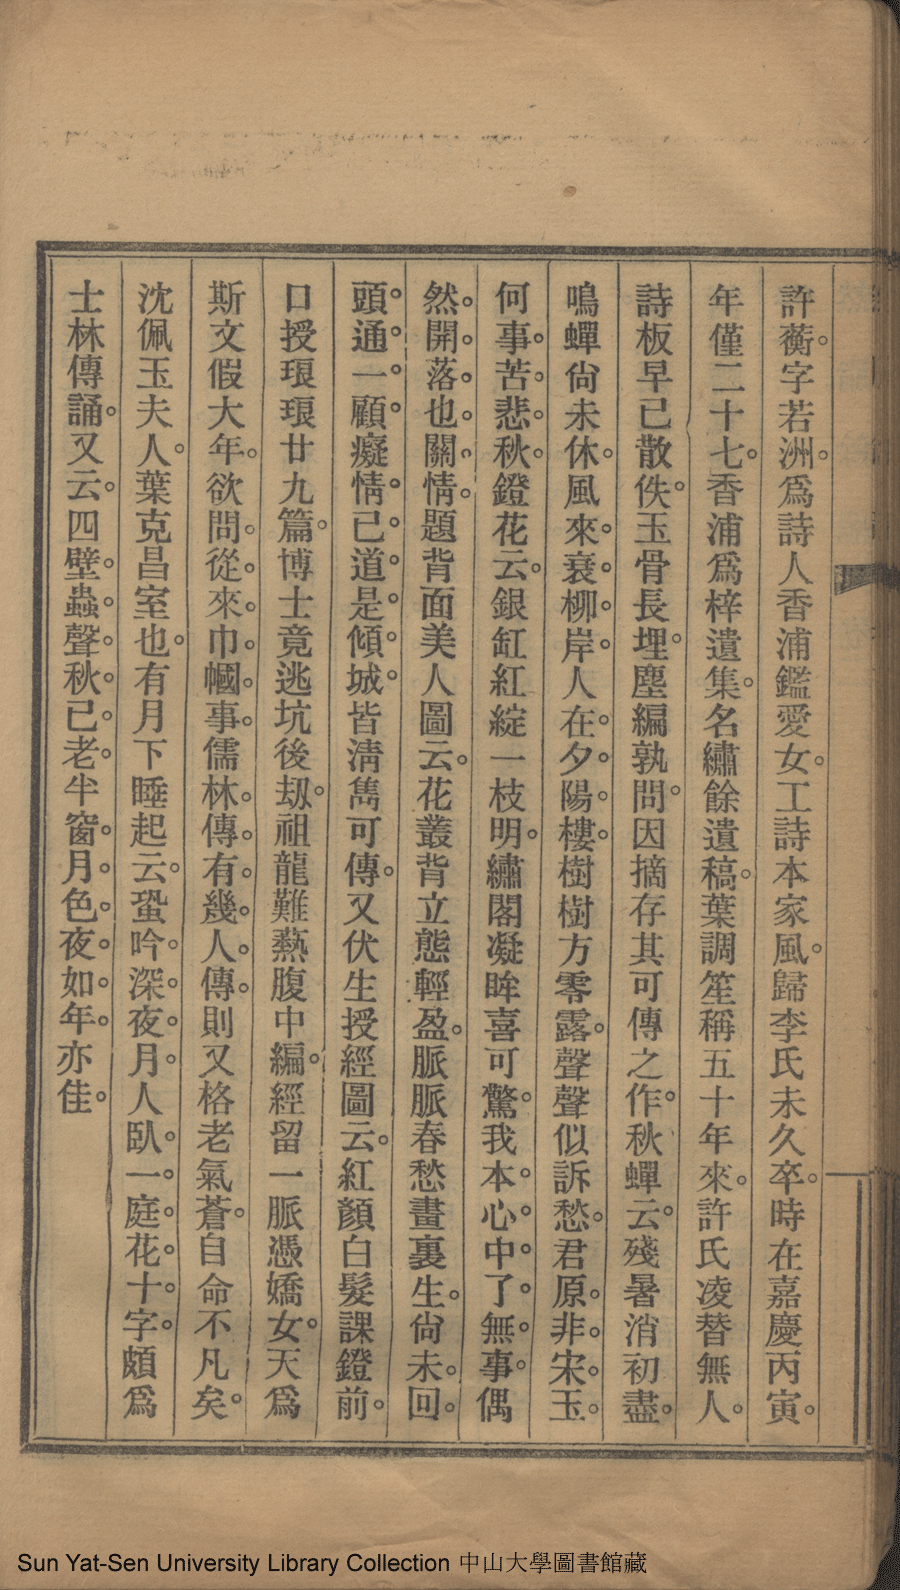 許蘅。字若洲。爲詩人香浦鑑愛女。工詩本家風。歸李氏未久卒。時在嘉慶丙寅。
年僅二十七。香浦爲梓遺集。名繡餘遺稿。葉調笙稱五十年來。許氏凌替無人。
詩板早已散佚。玉骨長埋。塵編孰問。因摘存其可傳之作。秋蟬云。殘暑消初盡。
鳴蟬尙未休。風來。衰。柳。岸。人在。夕。陽。樓。樹樹方零露。聲聲似訴愁。君原。非。宋。玉。
何事。苦。悲。秋。鐙花云。銀缸紅綻一枝明。繡閣凝眸喜可驚。我本。心。中。了。無。事。偶
然。開。落。也。關。情。題背面美人圖云。花叢背立態輕盈。脈脈春愁畫裏生。尙未。回。
頭。通。一。顧。癡情。已。道。是。傾。城。皆淸雋可傳。又伏生授經圖云。紅顏白髮課鐙前。
口授琅琅廿九篇。博士竟逃坑後刼。祖龍難爇腹中編。經留一脈憑嬌女。天爲
斯文假大年。欲問。從。來。巾。幗。事。儒林。傳。有。幾。人。傳。則又格老氣蒼。自命不凡矣。
沈佩玉夫人。葉克昌室也。有月下睡起云。蛩吟。深。夜。月。人臥。一。庭。花。十字。頗爲
士林傳誦。又云。四壁。蟲。聲。秋。已。老。半窗。月。色。夜。如。年。亦佳。
Sun Yat-Sen University Library Collection 中山大學圖書館藏